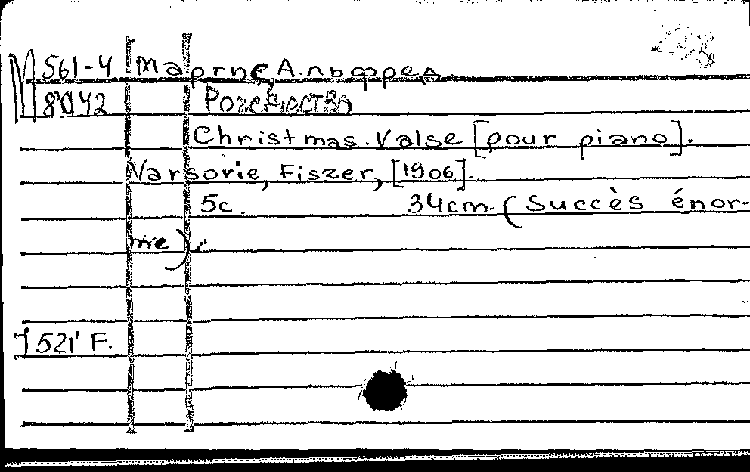 М 561-4 Маргис, Альфред
8042 Рождество
Christmas. Valse [pour piano].
Varsovie, Fiszer, [1906].
5c. 34cm (Succès énor-
me).
1521' F.